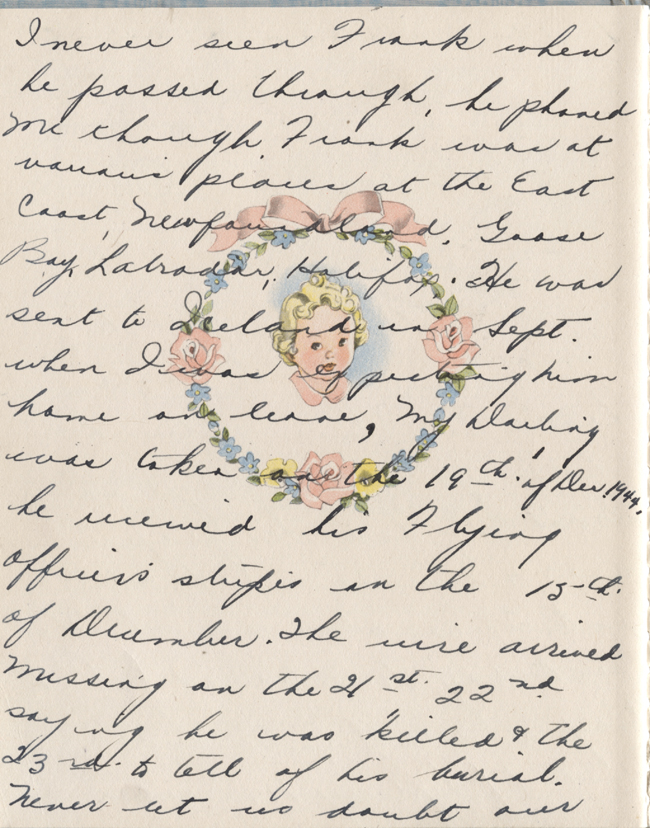 I never seen Frank when
he passed through, he phoned
me though, Frank was at
various places at the East
Coast, Newfoundland, Goose
Bay, Labrador, Halifax. He was
sent to Iceland in Sept.
when I was expecting him
home on leave, My Darling
was taken on the 19th. of Dec 1944,
he received his Flying
officers stripes on the 15th.
of December. The wire arrived
Missing on the 21st. 22nd
saying he was killed & the
23rd. to tell of his burial.
Never let us doubt our